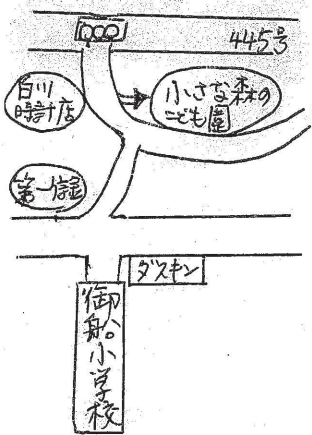 445号
白川
時計店
小さな森の
こども園
第一信金
ダスキン
御船小学校